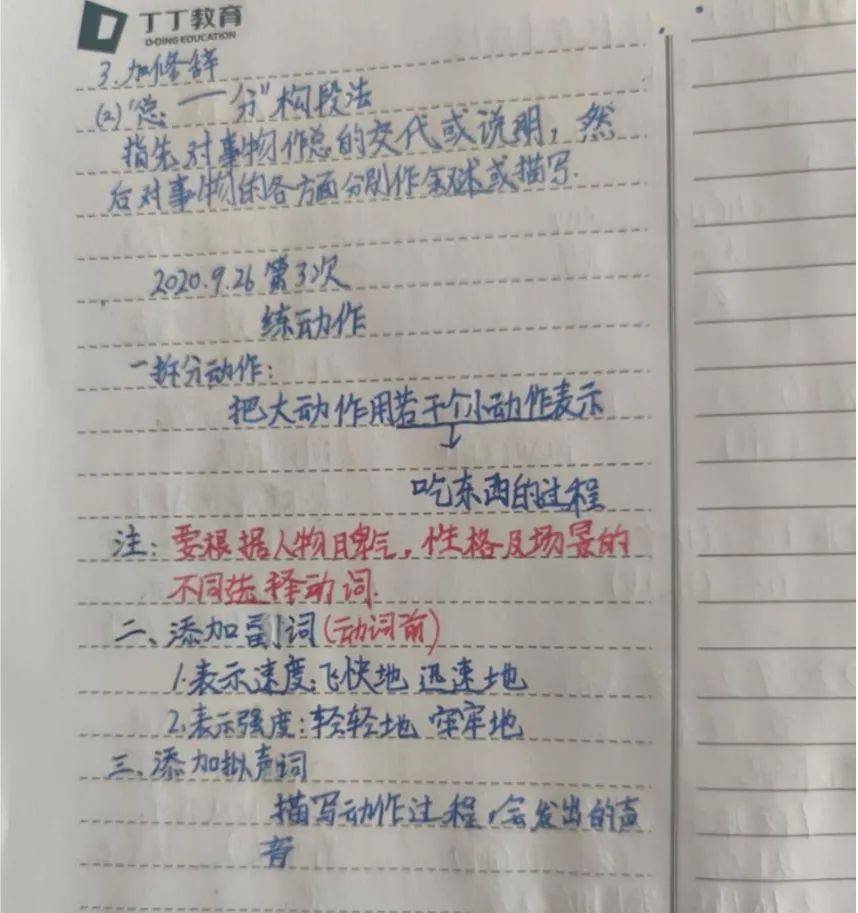 丁丁教育
D-DING EDUCATION
3.加修辞
(2)"总——分"构段法
指先对事物作总的交代或说明，然
后对事物的各方面分别作叙述或描写.
2020.9.26 第3次
练动作
一拆分动作：
把大动作用若干个小动作表示
↓
吃东西的过程
注：要根据人物脾气，性格及场景的
不同选择动词.
二、添加副词(动词前)
1.表示速度：飞快地 迅速地
2.表示强度：轻轻地 牢牢地
三、添加拟声词
描写动作过程，会发出的声
音